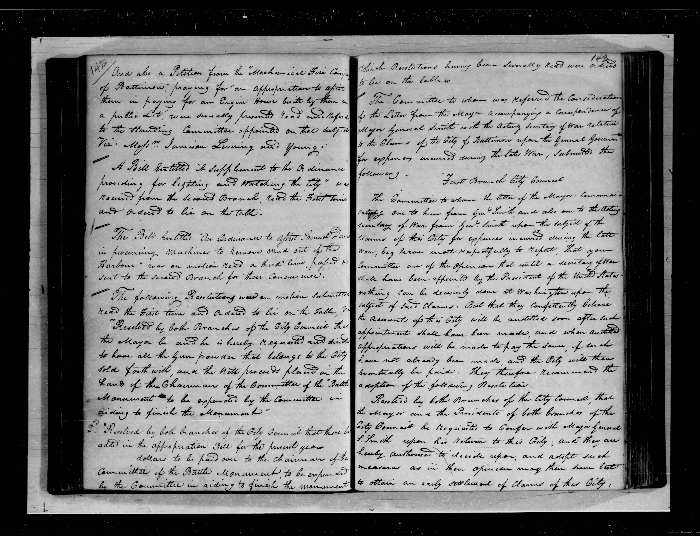 And also a Petition from the "Mechanical Fire Comp
of Baltimore" praying for an appropriation to assist
them in paying for an Engine House built by them on
a public Lot, were severally presented read and referred
to the Standing Committee appointed on that subject
Viz: Messrs Jamison Lowring and Young.
A Bill Entitled "A Supplement to the Ordinance
providing for lighting and Watching the City" was
received from the Second Branch, read the First time
and ordered to lie on the table.
The Bill entitled "An Ordinance to assist
in procuring Machines to remove mud out of the
Harbour" was on motion read a third time, passed &
sent to the Second Branch for their Concurrence.
The following Resolutions were on motion submitted
read the First time and Ordered to lie on the Table, Viz
"Resolved by both Branches of the City Council that
the Mayor be and he is hereby requested and directed
to have all the Gun powder that belongs to the City
sold forthwith, and the Nett proceeds placed in the
hands of the Chairman of the Committee of the "Battle
Monument" to be expended by the Committee in
aiding to finish the Monument"
"Resolved by both branches of the City Council that there be
added in the appropriation Bill for the present year
dollars to be paid over to the chairman of the
Committee of the Battle Monument to be expended
by the Committee in aiding to finish the monument
143
Which Resolutions having been severally read were ordered
to lie on the table
The Committee to whom was referred the Consideration
of the Letter from the Mayor accompanying a Correspondence of
Major General Smith with the Acting Secretary of War relative
to the Claims of the City of Baltimore upon the General Government
for expenses incurred during the late War, submitted the
following.
First Branch City Council
The Committee to whom the letter of the Mayor
one to him from Genl Smith and also one to the Acting
Secretary of War from Genl Smith upon the subject of the
claims of this City for expenses incurred during the late
war, beg leave most respectfully to report, that your
Committee are of the Opinion that until a Secretary of War
shall have been appointed by the President of the United States
nothing can be decisively done at Washington upon the
subject of said Claims. But that they confidently believe
the accounts of this City will be audited soon after such
appointment shall have been made, and when audited
appropriations will be made to pay the same, if such
have not already been made and the City will then
eventually be paid. They therefore recommend the
adoption of the following Resolution
Resolved by both Branches of the City Council, that
the Mayor and the Presidents of both branches of the
City Council be requested to Confer with Major General
S. Smith upon his return to this City, and they are
hereby authorised to decide upon, and adopt such
measures as in their opinion may then seem best
to attain an early settlement of claims of this City;